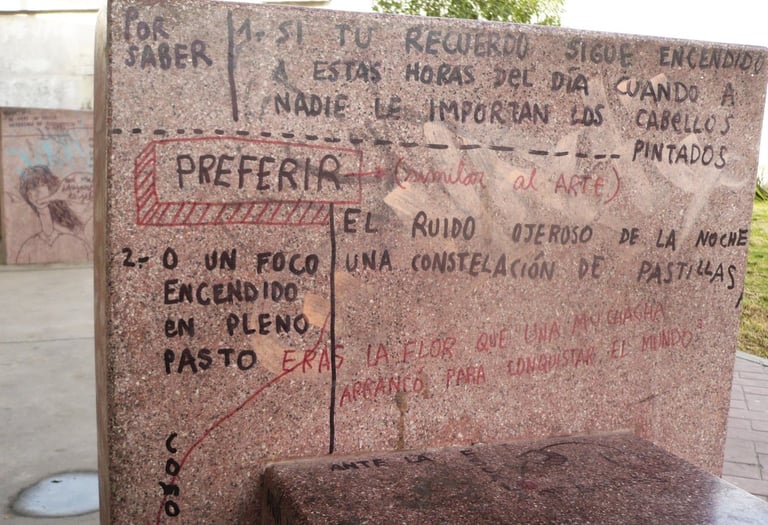 POR
SABER
1.- SI TU RECUERDO SIGUE ENCENDIDO
A ESTAS HORAS DEL DIA CUANDO A
NADIE LE IMPORTAN LOS CABELLOS
PINTADOS
PREFERIR
(similar al ARTE)
EL RUIDO OJEROSO DE LA NOCHE
UNA CONSTELACIÓN DE PASTILLAS,
2.- O UN FOCO
ENCENDIDO
en PLENO
PASTO
ERAS LA FLOR QUE UNA MUCHACHA
ARRANCÓ PARA CONQUISTAR EL MUNDO
COMO
ANTE LA